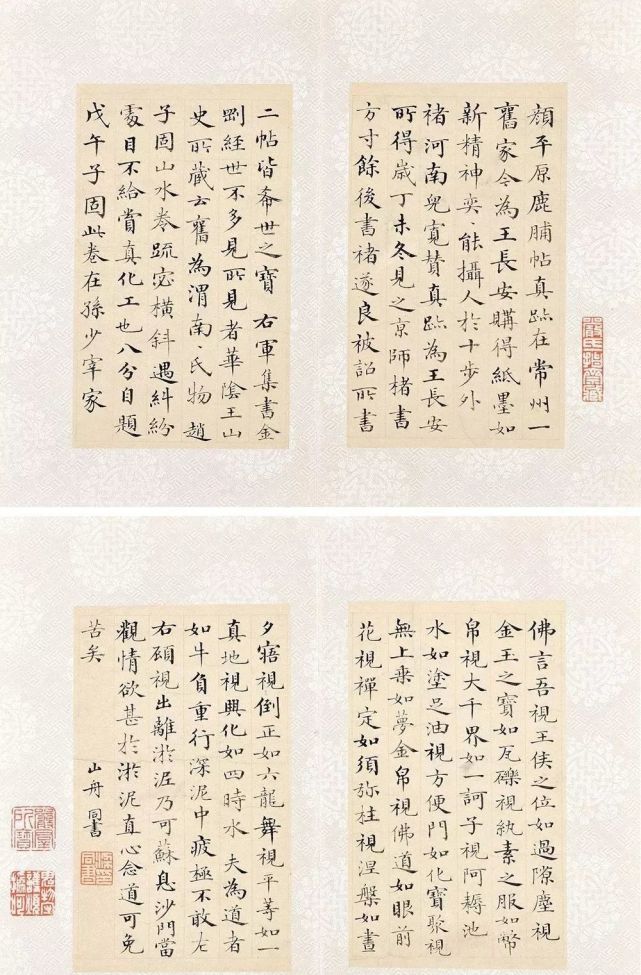 顔平原鹿脯帖真跡在常州一
舊家今為王長安購得紙墨如
新精神奕〻能攝人於十步外
褚河南兒寬贊真跡為王長安
所得歲丁未冬見之京師楮書
方寸餘後書褚遂良被詔所書
二帖皆希世之寶 右軍集書金
剛經世不多見所見者華陰王山
史所藏云舊為渭南〻氏物趙
子固山水卷疏宓橫斜遇糾紛
處目不給賞真化工也八分自題
戊午子固此卷在孫少宰家
佛言吾視王侯之位如過隙塵視
金玉之寶如瓦礫視紈素之服如幣
帛視大千界如一訶子視阿耨池
水如塗足油視方便門如化寶聚視
無上乘如夢金帛視佛道如眼前
花視禪定如須弥柱視涅槃如晝
夕寤視倒正如六龍舞視平等如一
真地視興化如四時木 夫為道者
如牛負重行深泥中疲極不敢左
右顧視出離淤泥乃可蘇息沙門當
觀情欲甚於淤泥直心念道可免
苦矣
山舟同書